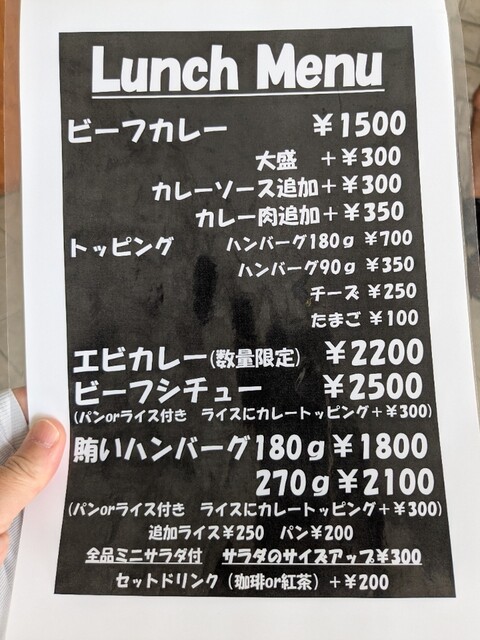 Lunch Menu
ビーフカレー ¥1500
大盛 +¥300
カレーソース追加+¥300
カレー肉追加+¥350
トッピング ハンバーグ180g ¥700
ハンバーグ90g ¥350
チーズ ¥250
たまご ¥100
エビカレー(数量限定) ¥2200
ビーフシチュー ¥2500
(パンorライス付き ライスにカレートッピング+¥300)
賄いハンバーグ180g¥1800
270g¥2100
(パンorライス付き ライスにカレートッピング+¥300)
追加ライス¥250 パン¥200
全品ミニサラダ付 サラダのサイズアップ¥300
セットドリンク(珈琲or紅茶)+¥200